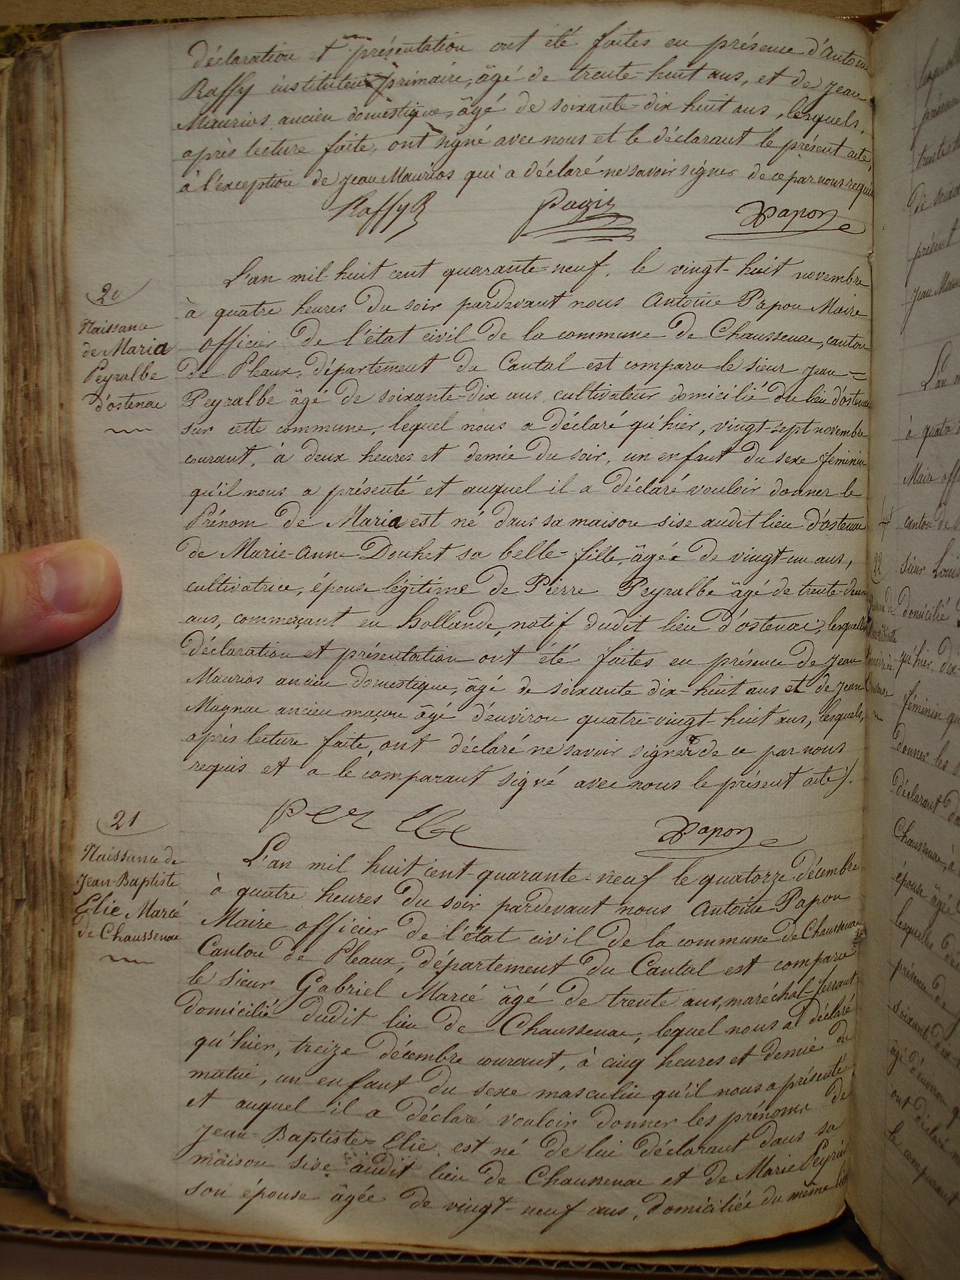 déclaration et présentation ont été faites en présence d'Antoine
Raffy instituteur primaire, âgé de trente-huit ans, et de Jean
Maurios ancien domestique, âgé de soixante-dix huit ans, lesquels,
après lecture faite, ont signé avec nous et le déclarant le présent acte,
à l'exception de Jean Maurios qui a déclaré ne savoir signer de ce par nous requis
Raffy Pagis Papon
20
Naissance
de Maria
Peyralbe
d'ostenac
L'an mil huit cent quarante-neuf, le vingt-huit novembre
à quatre heures du soir pardevant nous Antoine Papon Maire
officier de l'état civil de la commune de Chaussenac, canton
de Pleaux, département du Cantal est comparu le sieur Jean =
Peyralbe âgé de soixante-dix ans, cultivateur domicilié du lieu d'ostenac
sur cette commune, lequel nous a déclaré qu'hier, vingt-sept novembre
courant, à deux heures et demie du soir, un enfant du sexe féminin
qu'il nous a présenté et auquel il a déclaré vouloir donner le
Prénom de Maria est né dans sa maison sise audit lieu d'ostenac
de Marie-Anne Douhet sa belle-fille, âgée de vingt-un ans,
cultivatrice, épouse légitime de Pierre Peyralbe âgé de trente-deux
ans, commerçant en hollande, natif dudit lieu d'ostenac, lesquelles
déclaration et présentation ont été faites en présence de Jean
Maurios ancien domestique, âgé de soixante dix-huit ans et de Jean
Magnac ancien maçon âgé d'environ quatre-vingt huit ans, lesquels,
après lecture faite, ont déclaré ne savoir signer de ce par nous
requis et a le comparant signé avec nous le présent acte).
Papon
21
Naissance de
Jean-Baptiste
Elie Marcé
de Chaussenac
L'an mil huit cent-quarante-neuf le quatorze décembre
à quatre heures du soir pardevant nous Antoine Papon
Maire officier de l'état civil de la commune de Chaussenac
Canton de Pleaux, département du Cantal est comparu
le sieur Gabriel Marcé âgé de trente ans, maréchal-ferrant
domicilié dudit lieu de Chaussenac, lequel nous a déclaré
qu'hier, treize décembre courant, à cinq heures et demie du
matin, un enfant du sexe masculin qu'il nous a présenté
et auquel il a déclaré vouloir donner les prénoms de
Jean-Baptiste Elie est né de lui déclarant dans sa
maison sise audit lieu de Chaussenac et de Marie Peyrié
son épouse âgée de vingt-neuf ans, domiciliée du même lieu